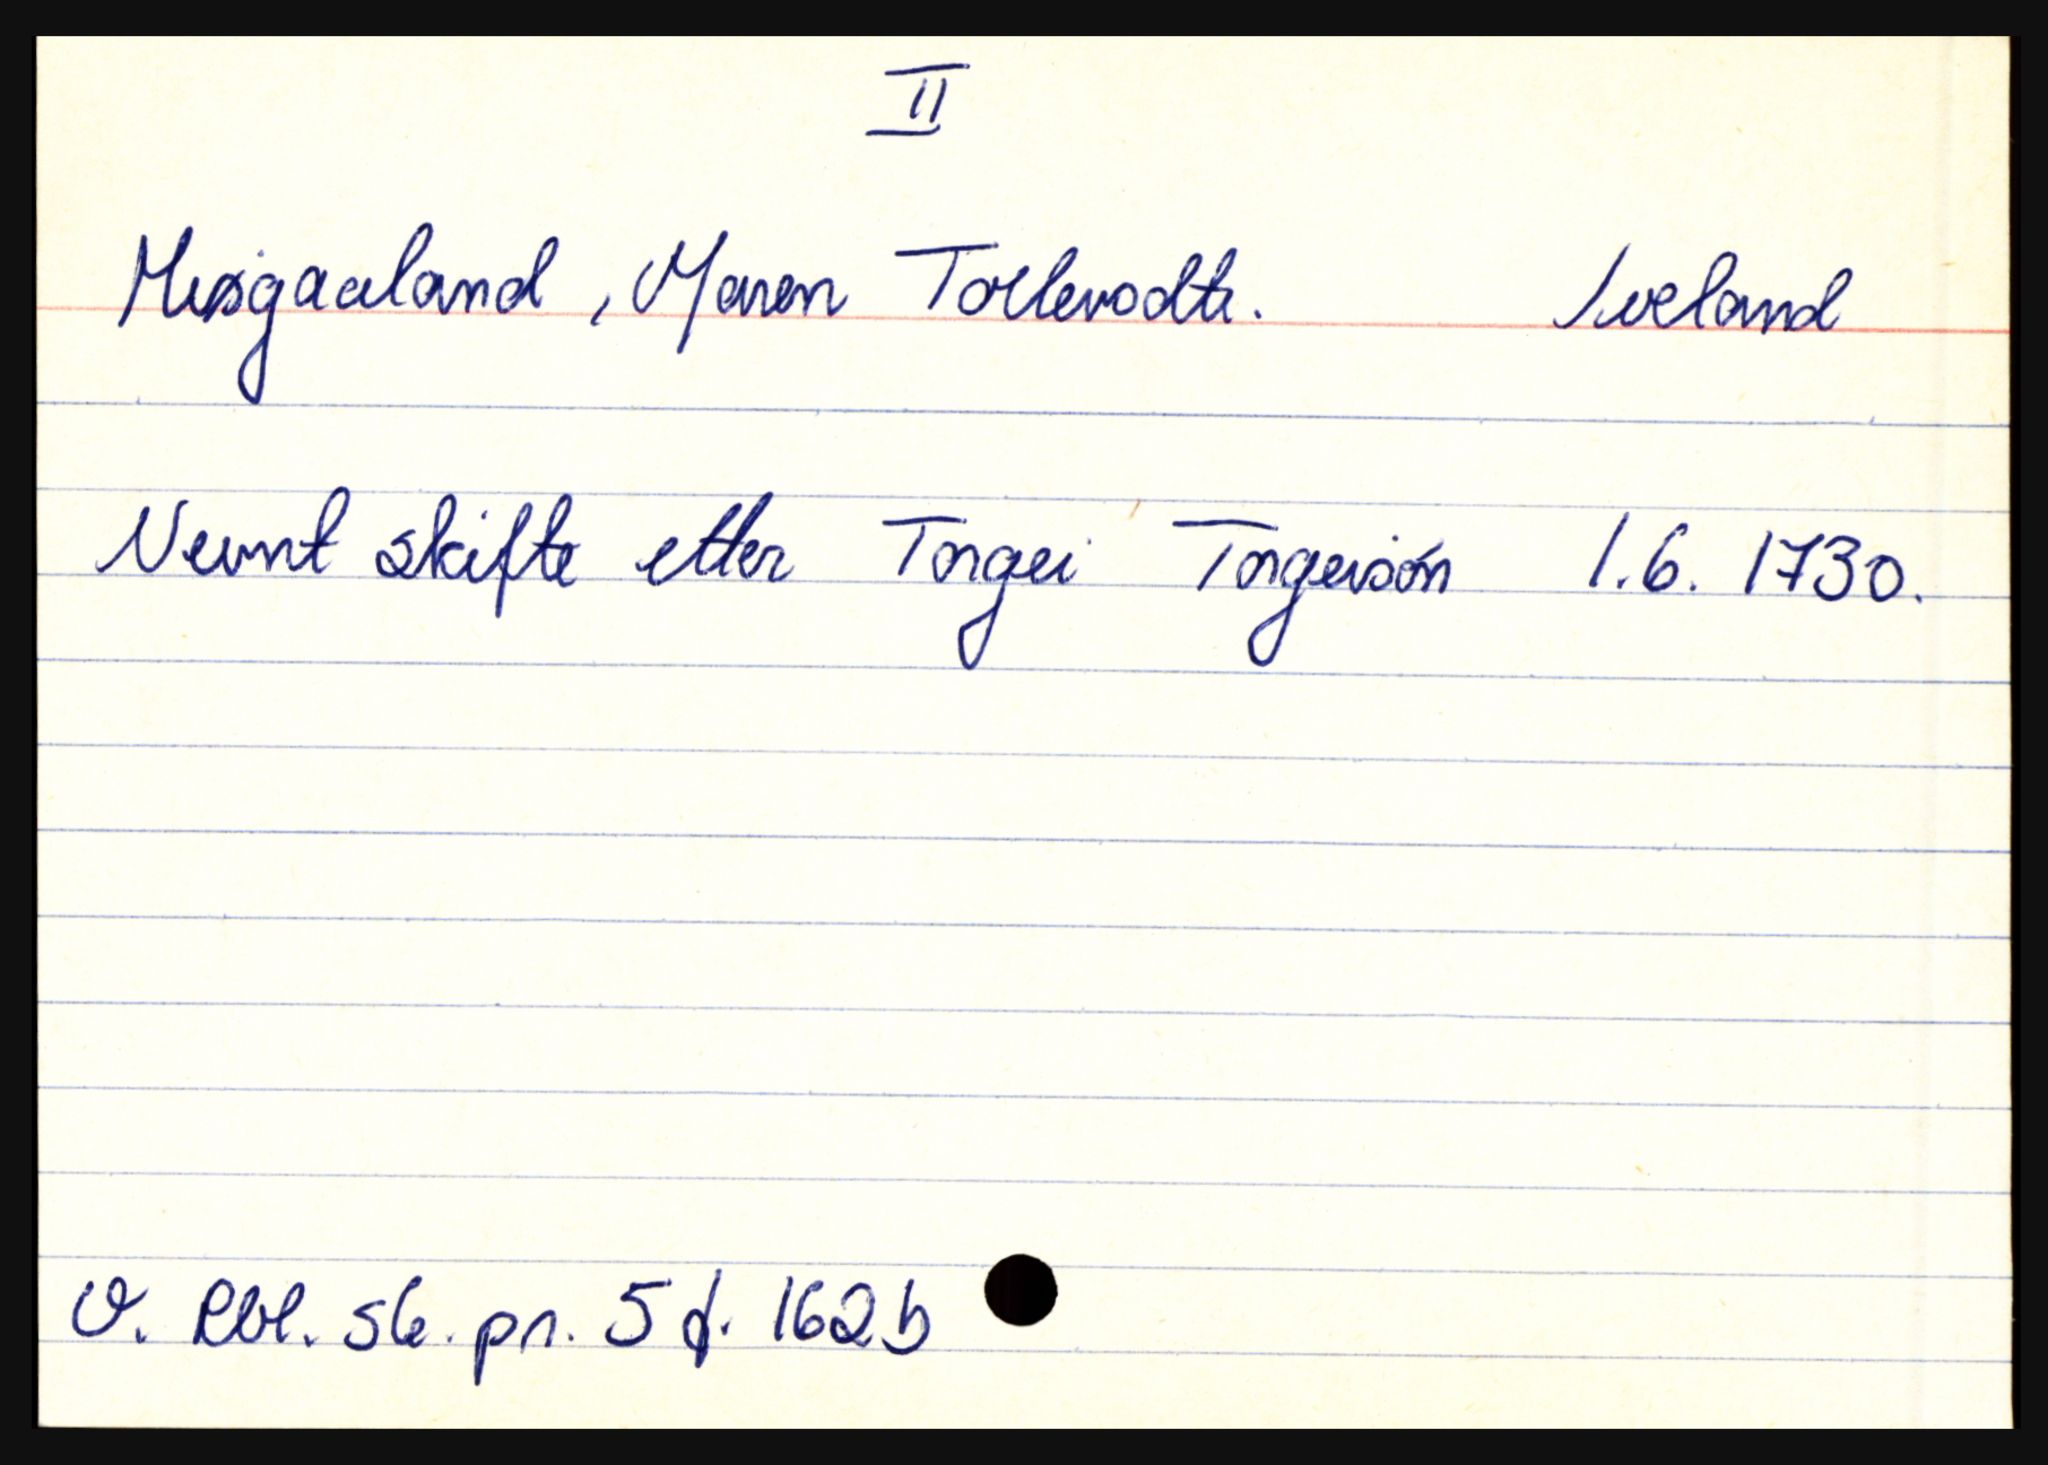 II
Mosgaaland, Maren Tollevsdtr. Iveland
Nevnt skifte etter Torgei Torgeisón 1.6. 1730.
V. Rbl. sk. pr. 5 f. 162b